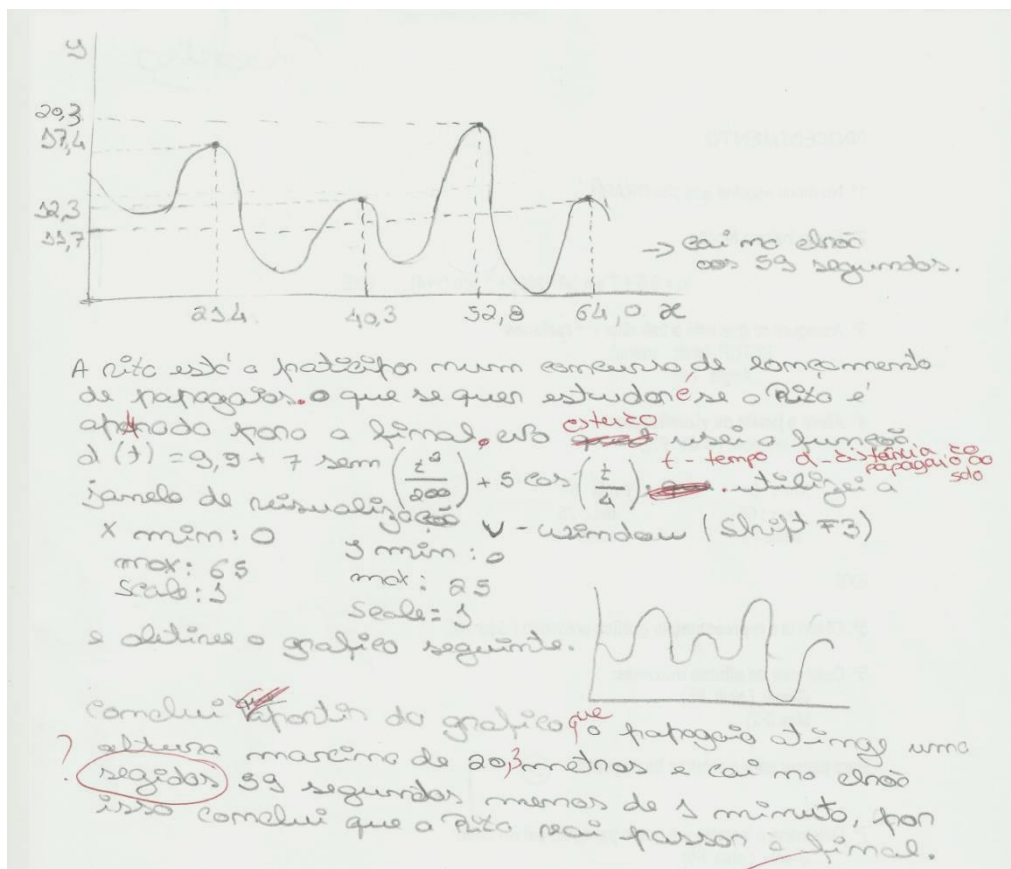 y
20,3
17,4
12,3
11,7
→ cai no chão
aos 59 segundos.
23,4 40,3 52,8 64,0 x
A Rita está a participar num concurso de lançamento
de papagaios. O que se quer estudar é se a Rita é
apurada para a final. esteico usei a função
d(t) = 9,9 + 7 sem (t²/200) + 5 cos (t/4). utilizei a
t - tempo d - distância do
papagaio ao
solo
janela de visualização V - window (Shift F3)
X min: 0 Y min: 0
max: 65 max: 25
scale: 1 scale = 1
e obtive o grafico seguinte.
Conclui apartir do grafico que o papagaio atinge uma
altura marcima de 20,3 metros e cai no chão
? segidos 59 segundos menos de 1 minuto, por
isso conclui que a Rita vai passar à final.